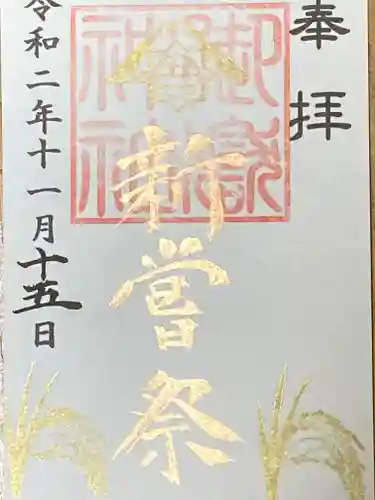 奉拝
新嘗祭
令和二年十一月十五日